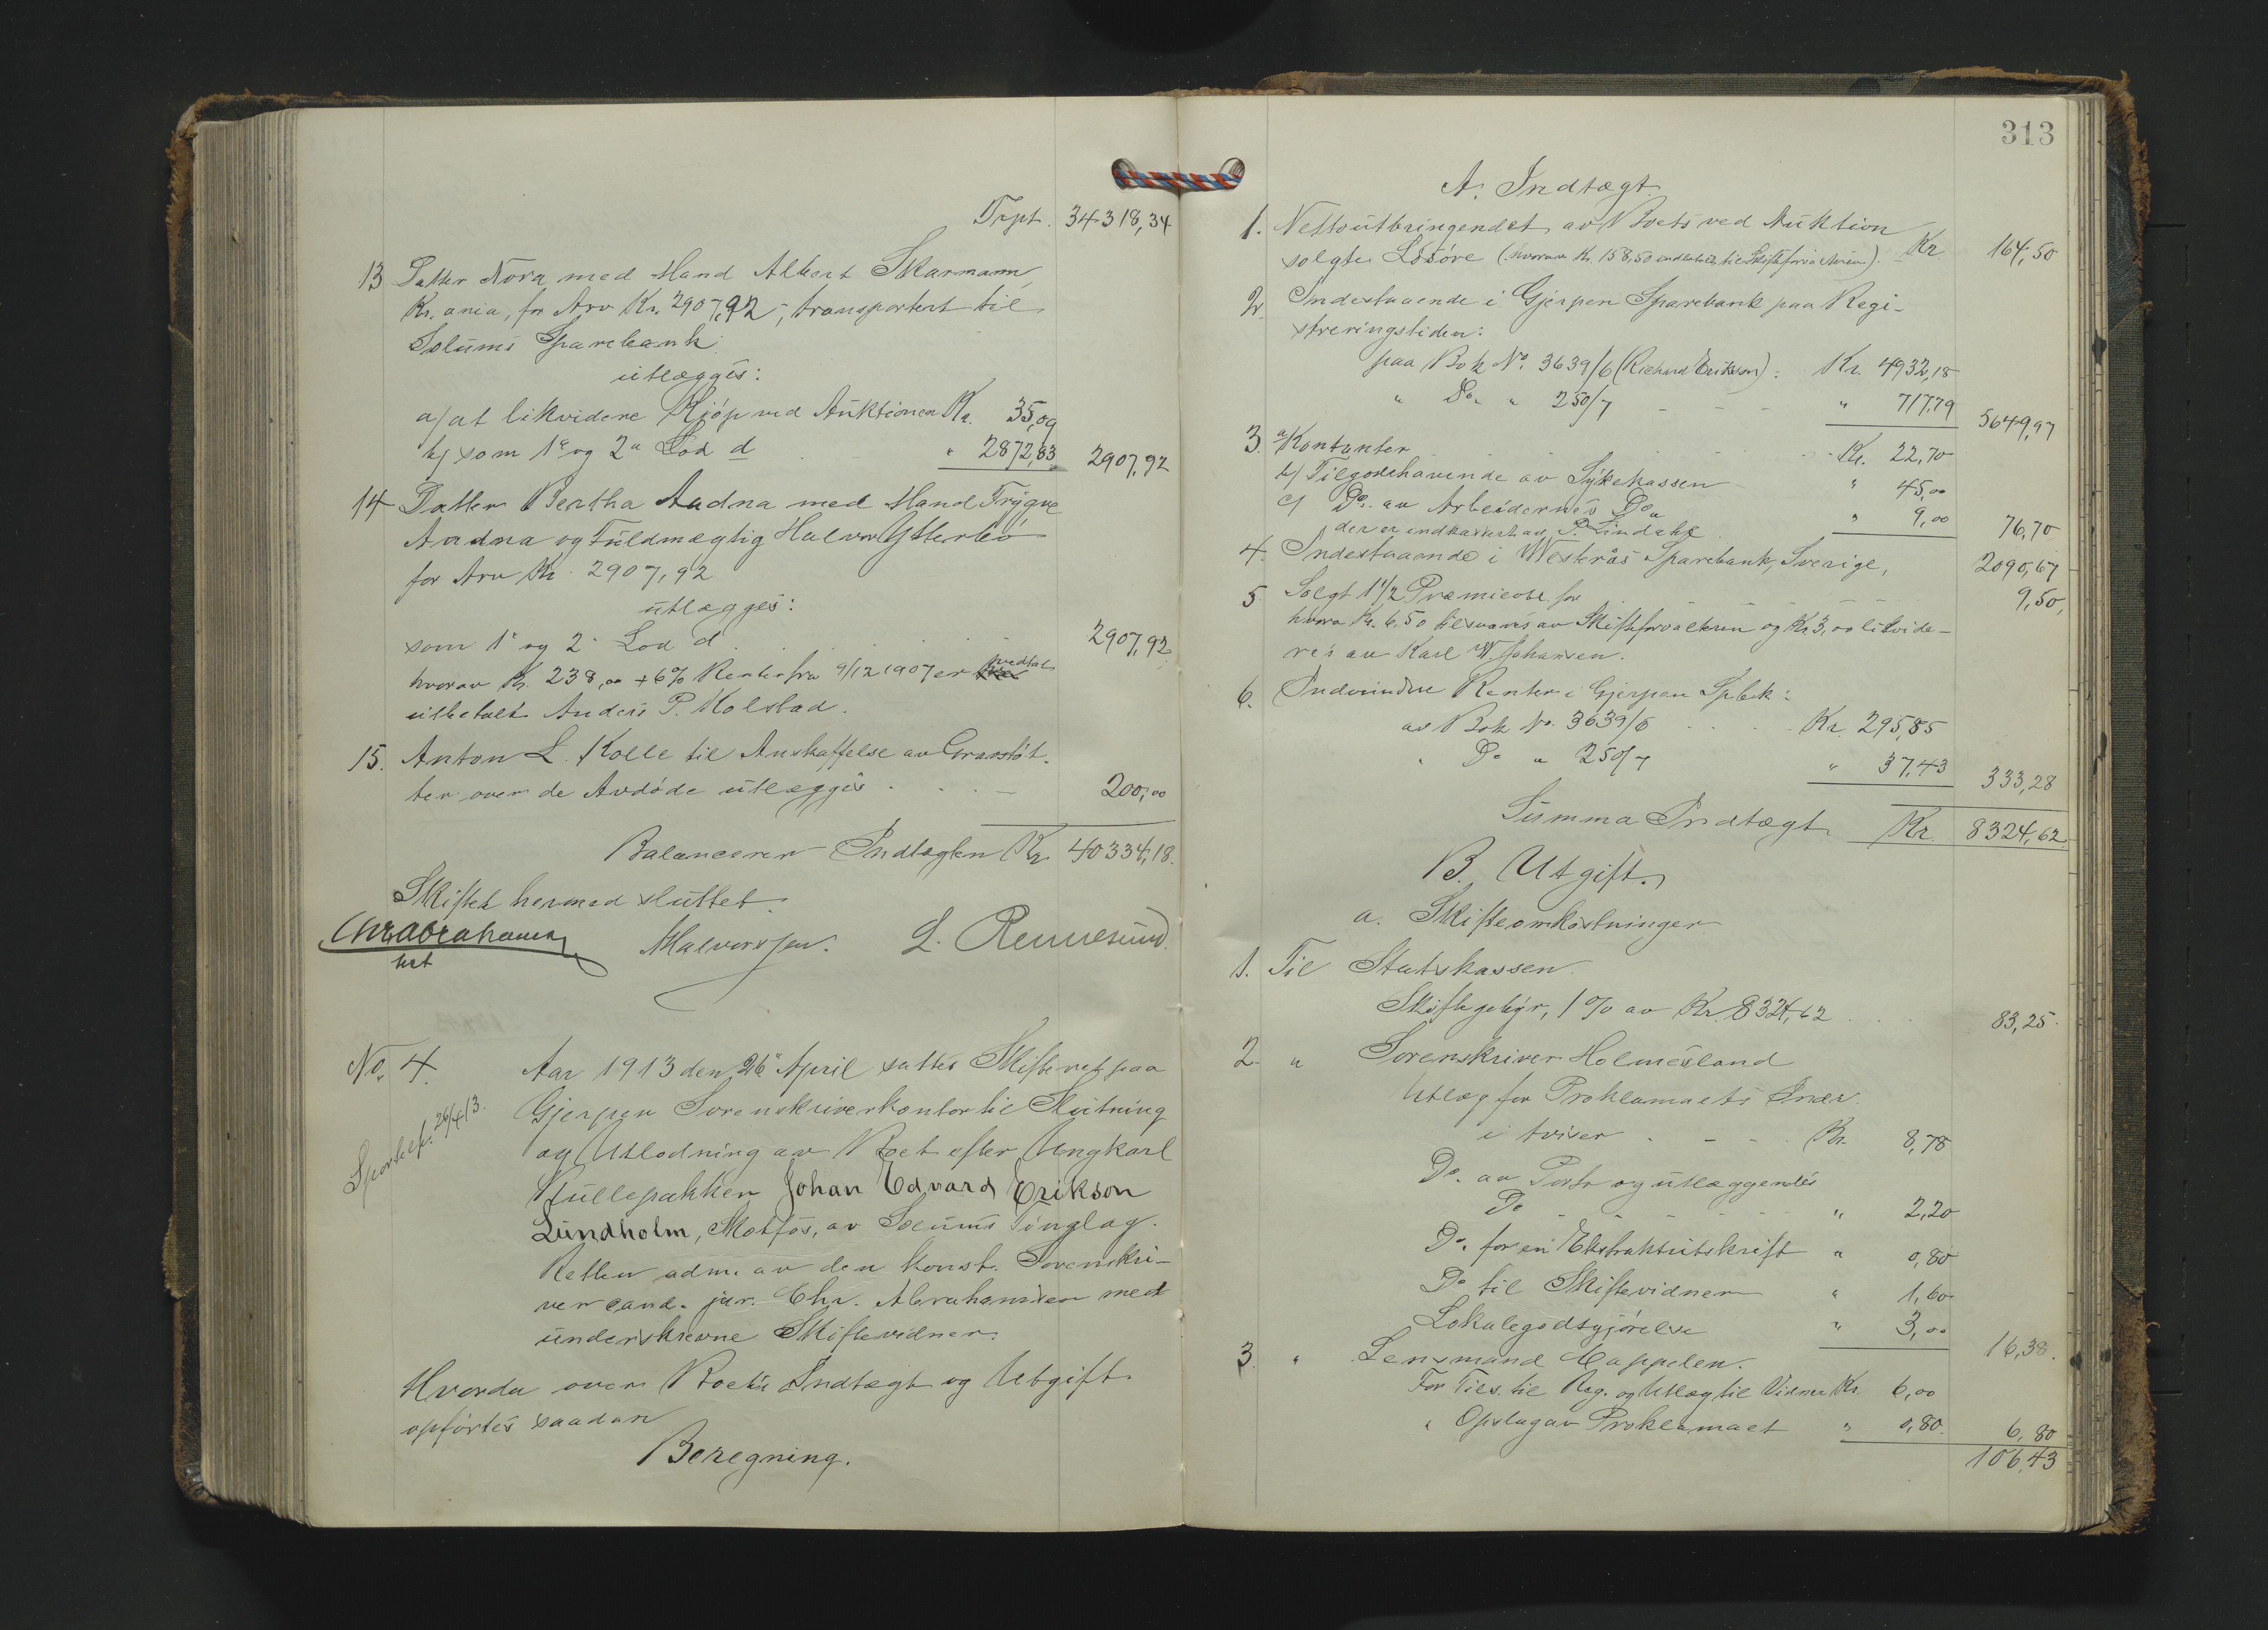 Trpt. 34318,34
13 Datter Nora med Mand Albert Skarmann,
Kr.ania, for Arv Kr. 2907,92 -, transportert til
Solums Sparebank
utlægges:
a/ at likvidere Kjøp ved Auktionen Kr. 35,09
b/ som 1e og 2a Lod d " 2872,83 2907,92
14 Datter Bertha Aadna med Mand Trygve
Aadna og Fuldmægtig Halvor Ytterbø
for Arv Kr. 2907,92
utlægges:
som 1e og 2. Lod d 2907,92
hvorav Kr. 238,00 + 6% Renter fra 9/12 1907 er
utbetalt Anders P. Holstad.
15. Anton L. Kolle til Anskaffelse av Gravstøt-
ter over de Avdøde utlægges 200,00
Balancerer Indtægten Kr. 40334,18.
Skiftet hermed sluttet.
Chr Abrahamsen Halvorssen. L. Rennesund.
kst
No. 4. Aar 1913 den 26e April sattes Skifteret paa
Gjerpen Sorenskriverkontor til Slutning
26/4 13.
og Utlodning av Boet efter Ungkarl
Kullepakker Johan Edvard Erikson
Lundholm, Skotfos, av Solums Tinglag.
Retten adm. av den konst. Sorenskri-
ver cand. jur. Chr. Abrahamsen med
underskrevne Skiftevidner.
Hvorda over Boets Indtægt og Utgift
opførtes saadan
Beregning.
313
A. Indtægt.
1. Nettoutbringendet av Boets ved Auktion
solgte Løsøre (hvorav Kr. 158,50 indbetalt til Skifteforvalteren). Kr 164,50
2. Indestaaende i Gjerpen Sparebank paa Regi-
streringstiden:
paa Bok No. 3639/6 (Richard Erikson): Kr. 4932,18
" Do. " 250/7 - - - " 717,79 5649,97
3. a/ Kontanter Kr. 22,70
b/ Tilgodehavende av Sykekassen " 45,00
c/ Do. av Arbeidernes Do. " 9,00 76,70
der er indkassert av P. Lindahl
4. Indestaaende i Westerås Sparebank, Sverige, 2090,67
5. Solgt 1 1/2 Præmieobl. for 9,50,
hvorav Kr. 6,50 tilsvares av Skifteforvalteren og Kr. 3,00 likvide-
res av Karl W. Johansen.
6. Indvundne Renter i Gjerpen Spbk:
av Bok No. 3639/6 Kr. 295,85
" Do " 250/7 " 37,43 333,28
Summa Indtægt Kr. 8324,62
B. Utgift.
a. Skifteomkostninger
1. Til Statskassen.
Skiftegebyr, 1% av Kr. 8324,62 83,25.
2. " Sorenskriver Holmesland
Utlæg for Proklamaets Indr.
i Aviser Kr. 8,78
Do. av Porto og utlæggendes
Do - - - " 2,20
Do. for en Ekstraktutskrift " 0,80
Do til Skiftevidner " 1,60
Lokalegodtgjørelse " 3,00 16,38.
3. " Lensmand Cappelen.
For Tils. til Reg. og Utlæg til Vidner Kr. 6,00
" Opslag av Proklamaet " 0,80. 6,80
106,43